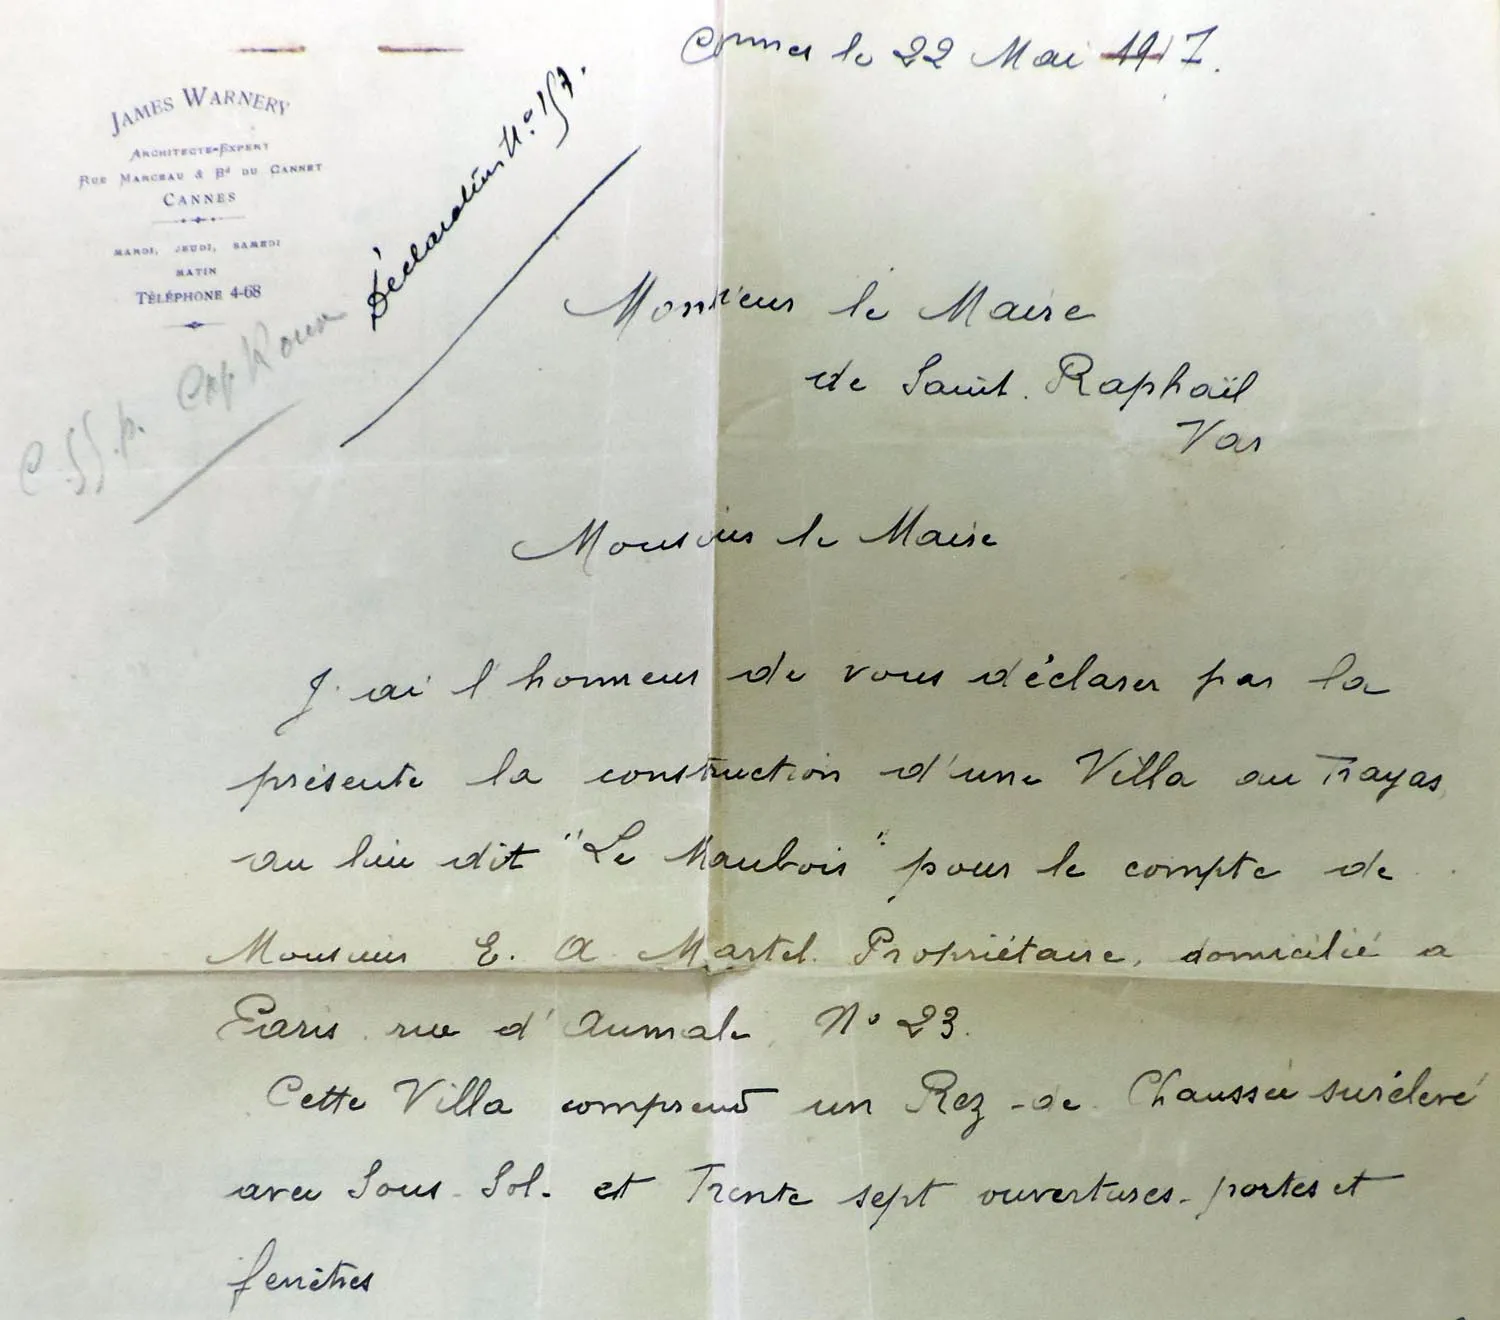 JAMES WARNERY
ARCHITECTE-EXPERT
RUE MARCEAU & Bd DU CANNET
CANNES
MARDI, JEUDI, SAMEDI
MATIN
TÉLÉPHONE 4-68
Cannes le 22 Mai 1917.
Déclaration No. 157.
Cap Roux
Monsieur le Maire
de Saint. Raphaël
Var
Monsieur le Maire
J'ai l'honneur de vous déclarer par la
présente la construction d'une Villa au Trayas
au lieu dit "Le Maubois" pour le compte de
Monsieur E. A Martel. Propriétaire, domicilié a
Paris rue d'Aumale No 23.
Cette Villa comprend un Rez-de-Chaussée surélevé
avec Sous-Sol. et Trente sept ouvertures-portes et
fenêtres